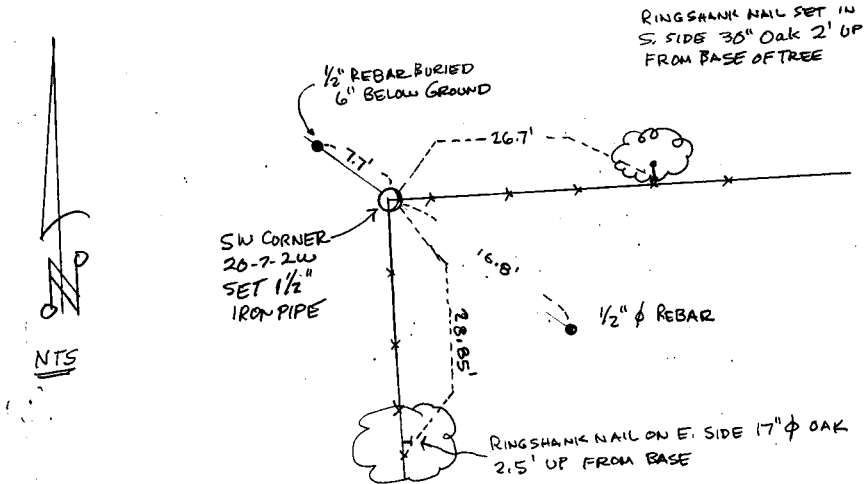 RINGSHANK NAIL SET IN
S. SIDE 30" OAK 2' UP
FROM BASE OF TREE
1/2" REBAR BURIED
6" BELOW GROUND
26.7'
7.7'
SW CORNER
20-7-2W
SET 1 1/2"
IRON PIPE
16.8'
1/2" ϕ REBAR
28.85'
N
NTS
RINGSHANK NAIL ON E. SIDE 17" ϕ OAK
2.5' UP FROM BASE